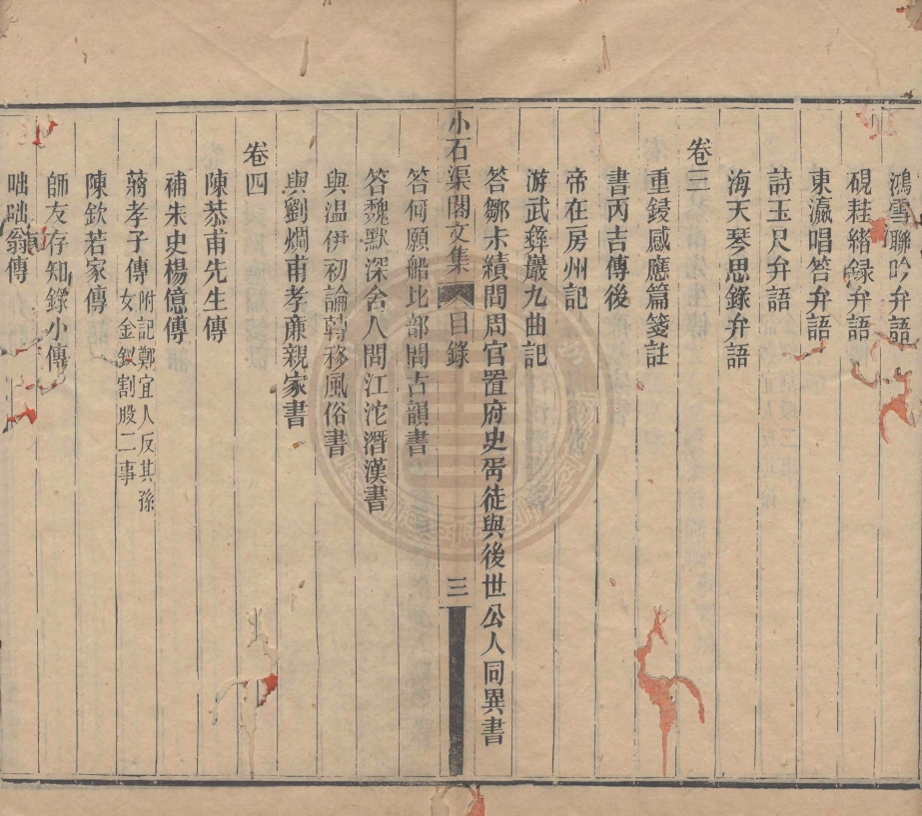 鴻雪聯吟弁語
硯耕緒録弁語
東瀛唱答弁語
詩玉尺弁語
海天琴思錄弁語
卷三
重鋟感應篇箋註
書丙吉傳後
帝在房州記
游武彝巖九曲記
答鄒未績問周官置府史胥徒與後世公人同異書
小石渠閣文集 目錄 三
答何願船比部問古韻書
答魏默深舍人問江沱潛漢書
與温伊初論轉移風俗書
與劉烱甫孝廉親家書
卷四
陳恭甫先生傳
補朱史楊億傳
孝子傳 附記鄭宜人反其孫女金釵割股二事
陳欽若家傳
師友存知錄小傳
咄咄翁傳